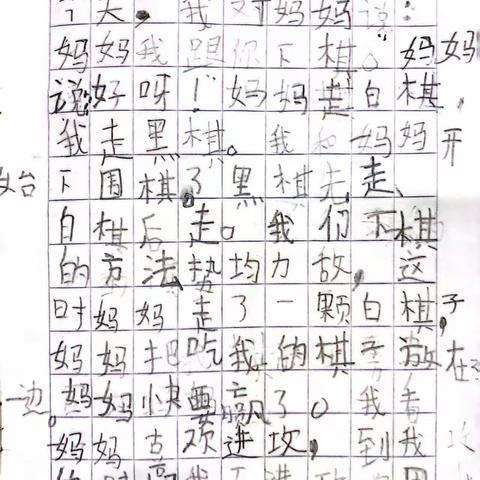 个大，我对妈妈说：
妈妈我跟你下棋。妈妈
说好呀！妈妈走白棋，
我走黑棋。我和妈妈开
始下围棋了。黑棋先走、
白棋后走。我们下棋
的方法势均力敌，这
时妈妈走了一颗白棋，子
妈妈把吃我的棋子放在
一边。妈妈小快要赢了。我看
妈妈古须进攻，到我攻